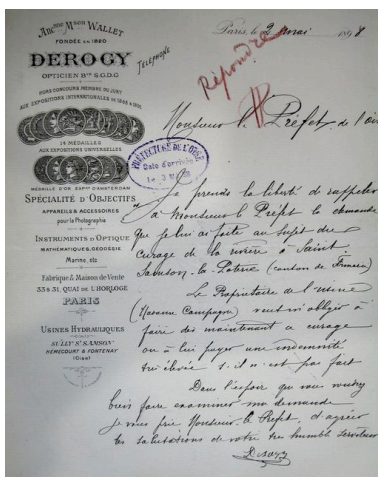 Anc.ne M.son WALLET
FONDÉE en 1820
DEROGY
OPTICIEN B.té S.G.D.G
HORS CONCOURS MEMBRE DU JURY
AUX EXPOSITIONS INTERNATIONALES DE
14 MÉDAILLES
AUX EXPOSITIONS UNIVERSELLES
MÉDAILLE D'OR EXP.on D'AMSTERDAM
SPÉCIALITÉ D'OBJECTIFS
APPAREILS & ACCESSOIRES
pour la Photographie
INSTRUMENTS D'OPTIQUE
MATHÉMATIQUES, GÉODÉSIE
Marine, etc
Fabrique & Maison de Vente
33 & 31, QUAI DE L'HORLOGE
PARIS
USINES HYDRAULIQUES
S.t SAMSON
HÉMÉCOURT & FONTENAY
(Oise)
TÉLÉPHONE
Paris, le 2 mai 1898
Répondre
Monsieur le Préfet de l'Oise
PRÉFECTURE DE L'OISE
Date d'arrivée
Le 3 MAI 98
Je prends la liberté de rappeler
à Monsieur le Préfet la demande
que je lui ai faite au sujet du
curage de la rivière à Saint
Samson-la-Poterie (canton de Formerie)
Le Propriétaire de l'usine
(Havanne Campagne) veut m'obliger à
faire dès maintenant ce curage
ou à lui payer une indemnité
très élevée s'il n'est pas fait
Dans l'espoir que vous voudrez
bien faire examiner ma demande
je vous prie Monsieur le Préfet, d'agréer
les salutations de votre très humble serviteur
Derogy